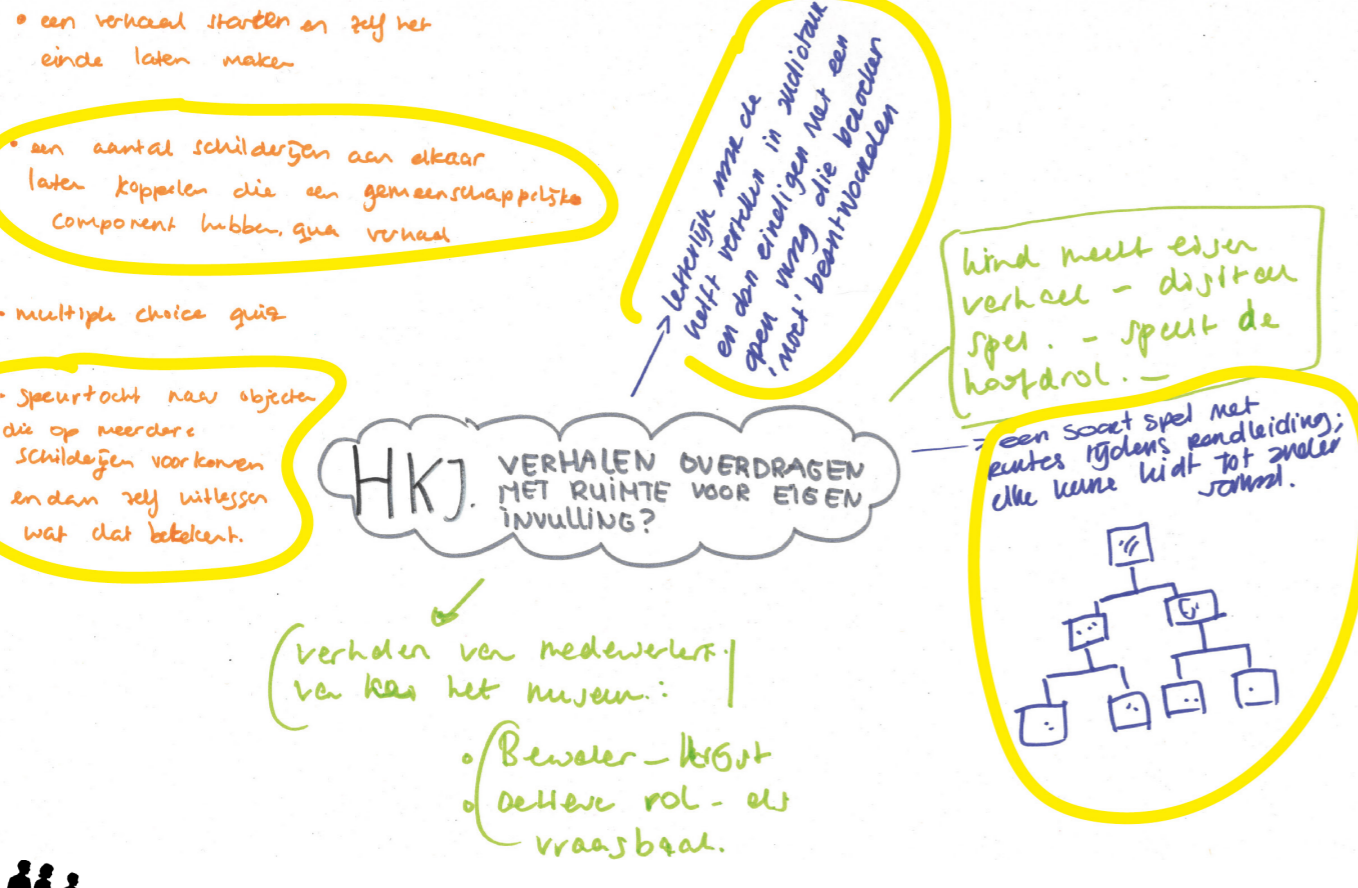 • een verhaal starten en zelf het
einde laten maken
• een aantal schilderijen aan elkaar
laten koppelen die een gemeenschappelijke
component hebben, qua verhaal
• multiple choice quiz
• speurtocht naar objecten
die op meerdere
schilderijen voorkomen
en dan zelf uitlessen
wat dat betekent.
→ letterlijk maar de
helft vertellen in audiotour
en dan eindigen met een
open vraag die bezoeker
'moet' beantwoorden
kind meelt eigen
verhaal - digitaal
spel. - speelt de
hoofdrol. -
→ een soort spel met
routes tijdens rondleiding;
elke keuze leidt tot ander
HKJ. VERHALEN OVERDRAGEN
MET RUIMTE VOOR EIGEN
INVULLING?
verhalen van medewerkers
van het museum:
• Bewaker -
• actieve rol - als
vraagbaak.